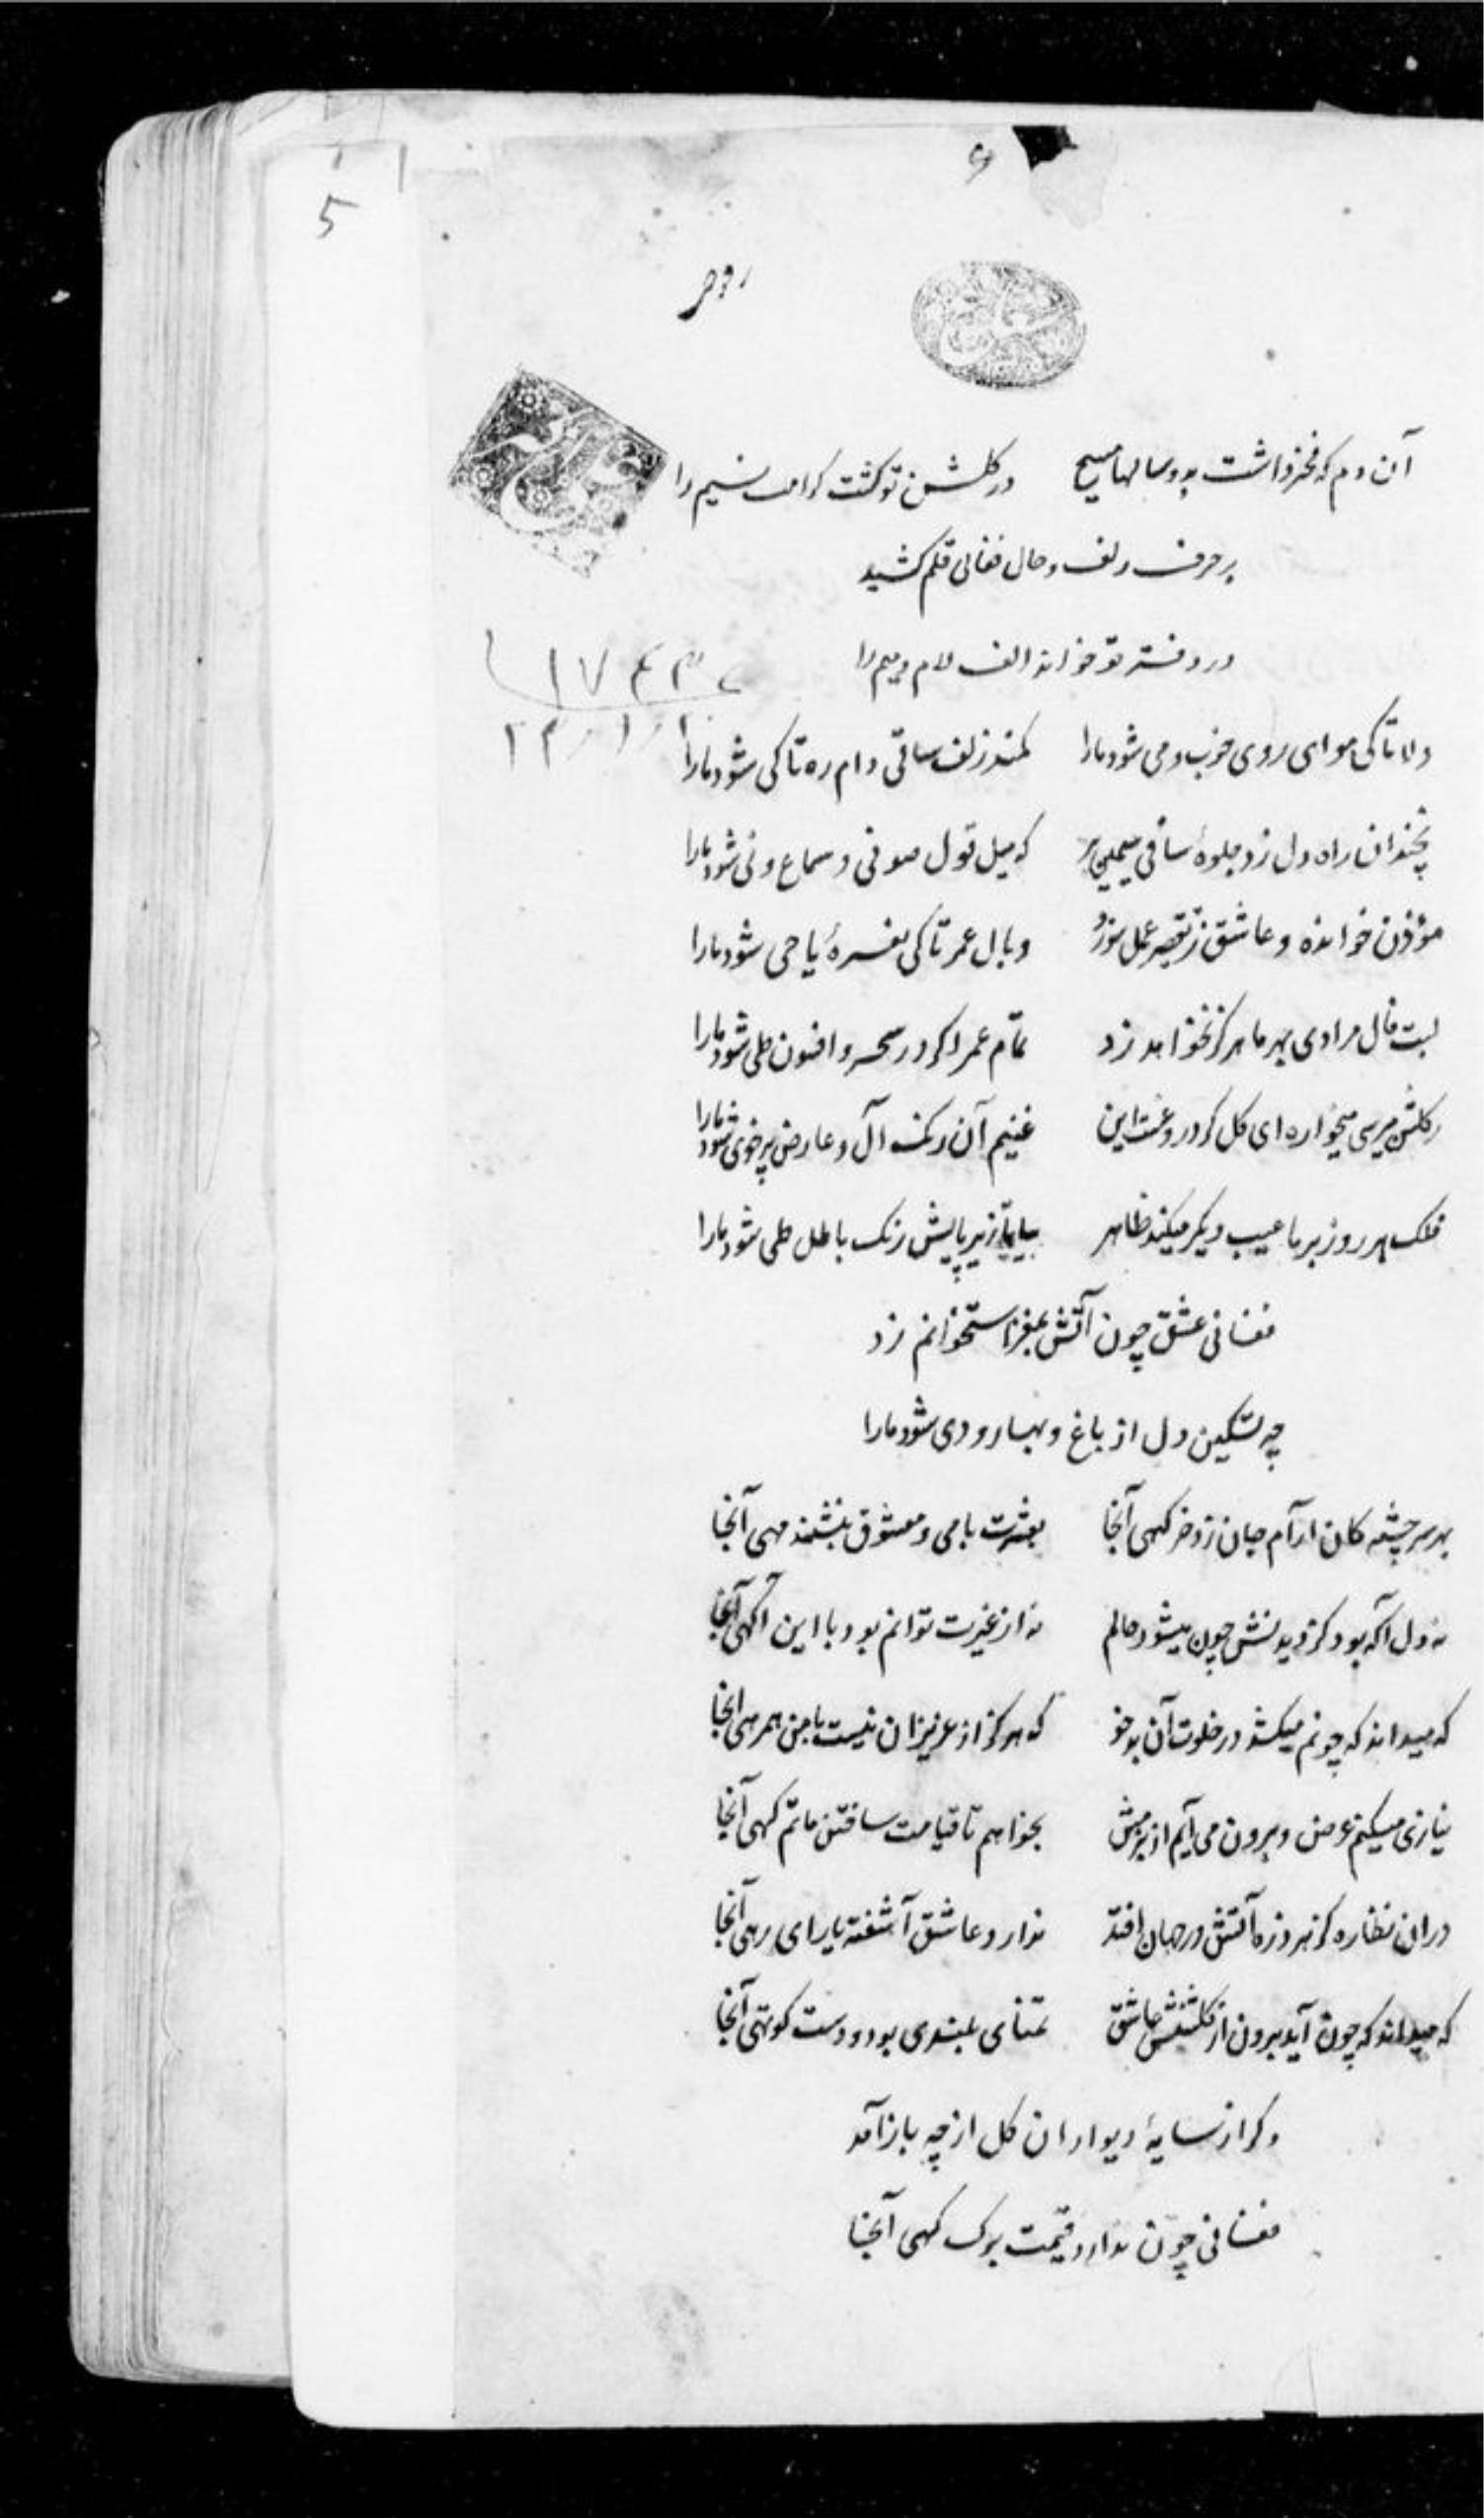 5
آن دم که فخر داشت بدو سالها مسیح در گلشن تو گشت کرامت نسیم را
بر حرف زلف و خال فغانی قلم کشید
در دفتر تو خواند الف لام و میم را
دلا تا کی هوای روی خوب و می شود ما را کمند زلف ساقی دام ره تا کی شود ما را
نچندان راه دل زد جلوهٔ ساقی که میل قول صوفی و سماع و نی شود ما را
مؤذن خوانده و عاشق ز تقصیر عمل سوزد وبال عمر تا کی نعرهٔ یا حی شود ما را
لبت فال مرادی بهر ما هرگز نخواهد زد تمام عمر اگر در سحر و افسون طی شود ما را
میخواره ای گل کرد رعنت این غنیم آن رنگ آل و عارض پر خوی شود ما را
فلک هر روز بر ما عیب دیگر میکند ظاهر بیا تا زیر پایش رنگ باطل طی شود ما را
فغانی عشق چون آتش بمغز استخوانم زد
چه تسکین دل از باغ و بهار و دی شود ما را
بهر سر چشمه کان آرام جان زد خرگهی آنجا بعشرت با می و معشوق بنشیند مهی آنجا
نه دل آگه بود کز دیدنش چون میشود حالم نه از غیرت توانم بود با این آگهی آنجا
که میداند که چونم میکشد در خلوت آن بدخو که هرگز از عزیزان نیست با من همرهی آنجا
نیازی میکنم عرض و برون می آیم از بزمش بخواهم تا قیامت ساختن ماتم گهی آنجا
در آن نظاره کز هر ذره آتش در جهان افتد ندارد عاشق آشفته یارای رهی آنجا
که میداند که چون آید برون از گلشنش عاشق تمنای بلندی بود و دست کوتهی آنجا
دگر از سایهٔ دیوار آن گل از چه باز آمد
فغانی چون ندارد قیمت برگ کهی آنجا